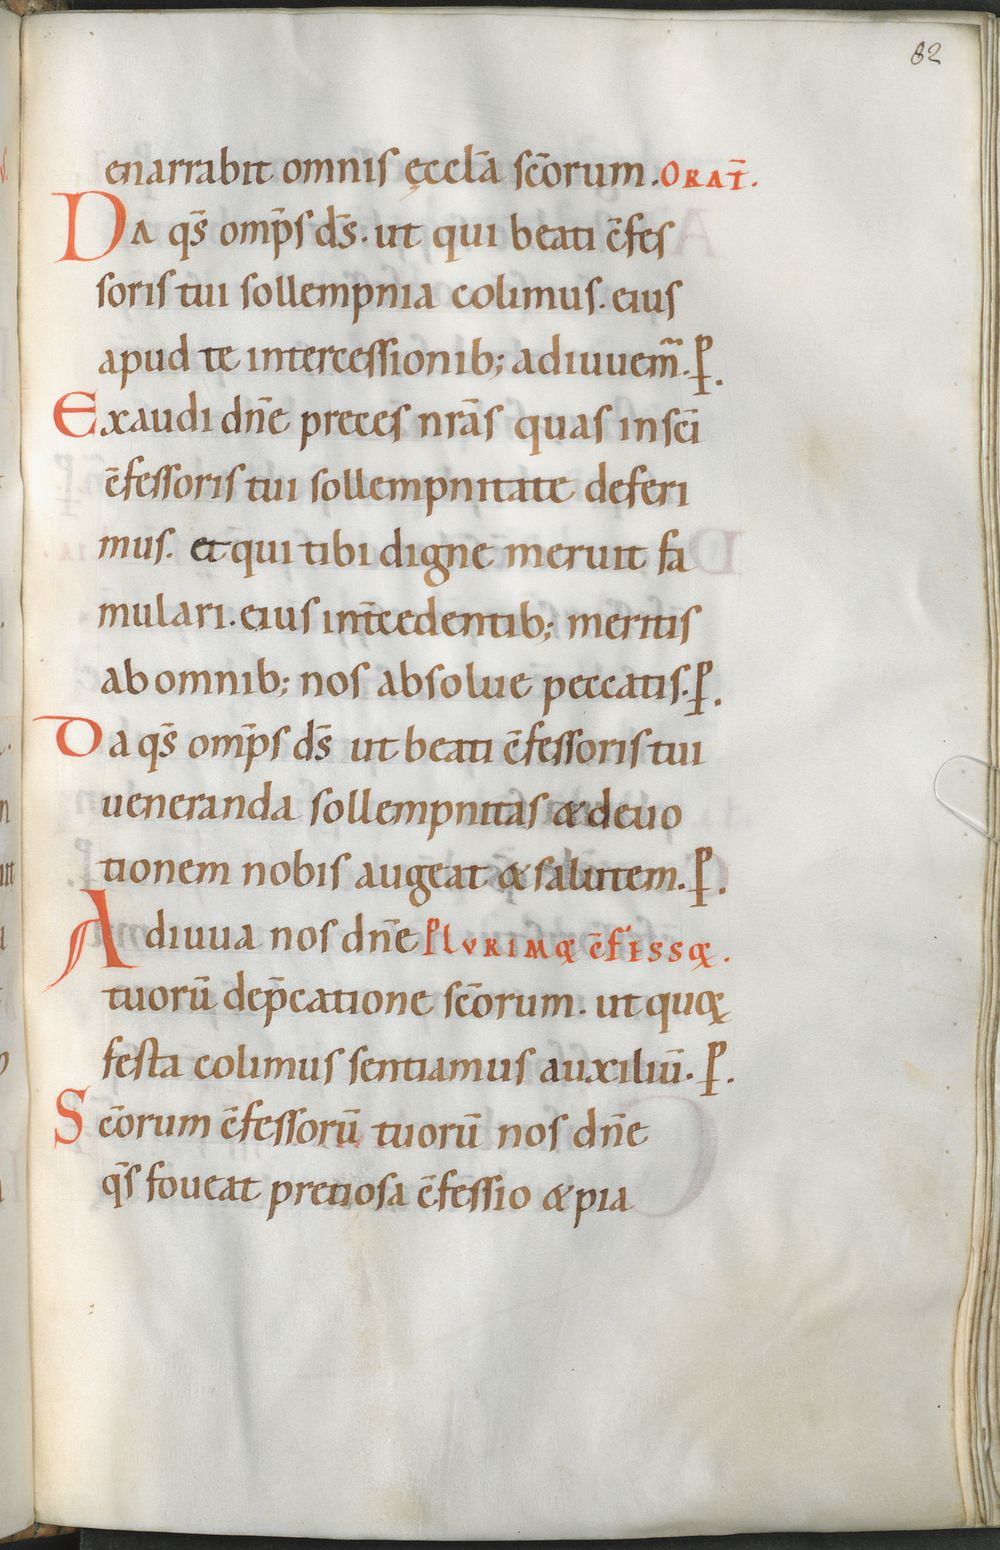 82
enarrabit omnis ęccl̄a sc̄orum. ORAT̄.
Da qs̄ omp̄s ds̄. ut qui beati c̄fes
soris tui sollempnia colimus. eius
apud te intercessionib; adiuuem̄. P.
Exaudi dn̄e preces nr̄as quas in sc̄i
c̄fessoris tui sollempnitate deferi
mus. et qui tibi digne meruit fa
mulari. eius int̄cedentib; meritis
ab omnib; nos absolue peccatis. P.
Da qs̄ omp̄s ds̄ ut beati c̄fessoris tui
ueneranda sollempnitas & deuo
tionem nobis augeat & salutem. P.
Adiuua nos dn̄e PlVRIMOꝜ c̄FESSOꝜ.
tuorū dep̄catione sc̄orum. ut quoꝝ
festa colimus sentiamus auxiliū. P.
Sc̄orum c̄fessorū tuorū nos dn̄e
qs̄ foueat pretiosa c̄fessio & pia